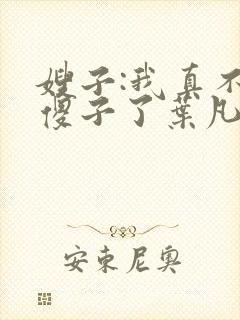 嫂子:我真不
傻子了葉凡
安東尼奧